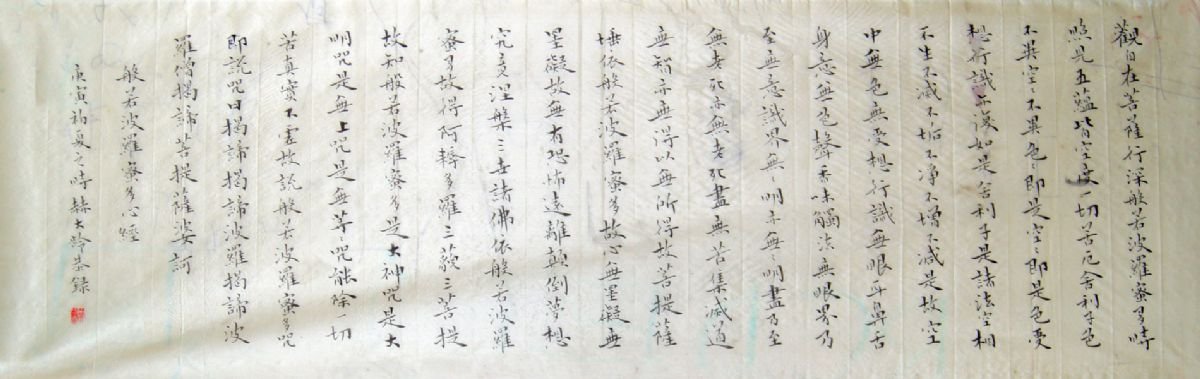 觀自在菩薩行深般若波羅蜜多時
照見五蘊皆空度一切苦厄舍利子色
不異空々不異色々即是空々即是色受
想行識亦復如是舍利子是諸法空相
不生不滅不垢不淨不增不減是故空
中無色無受想行識無眼耳鼻舌
身意無色聲香味觸法無眼界乃
至無意識界無々明亦無々明盡乃至
無老死亦無老死盡無苦集滅道
無智亦無得以無所得故菩提薩
埵依般若波羅蜜多故心無罣礙無
罣礙故無有恐怖遠離顛倒夢想
究竟涅槃三世諸佛依般若波羅
蜜多故得阿耨多羅三藐三菩提
故知般若波羅蜜多是大神咒是大
明咒是無上咒是無等咒能除一切
苦真實不虛故說般若波羅蜜多咒
即說咒曰揭諦揭諦波羅揭諦波
羅僧揭諦菩提薩婆訶
般若波羅蜜多心經
庚寅初夏之時赫大齡恭錄